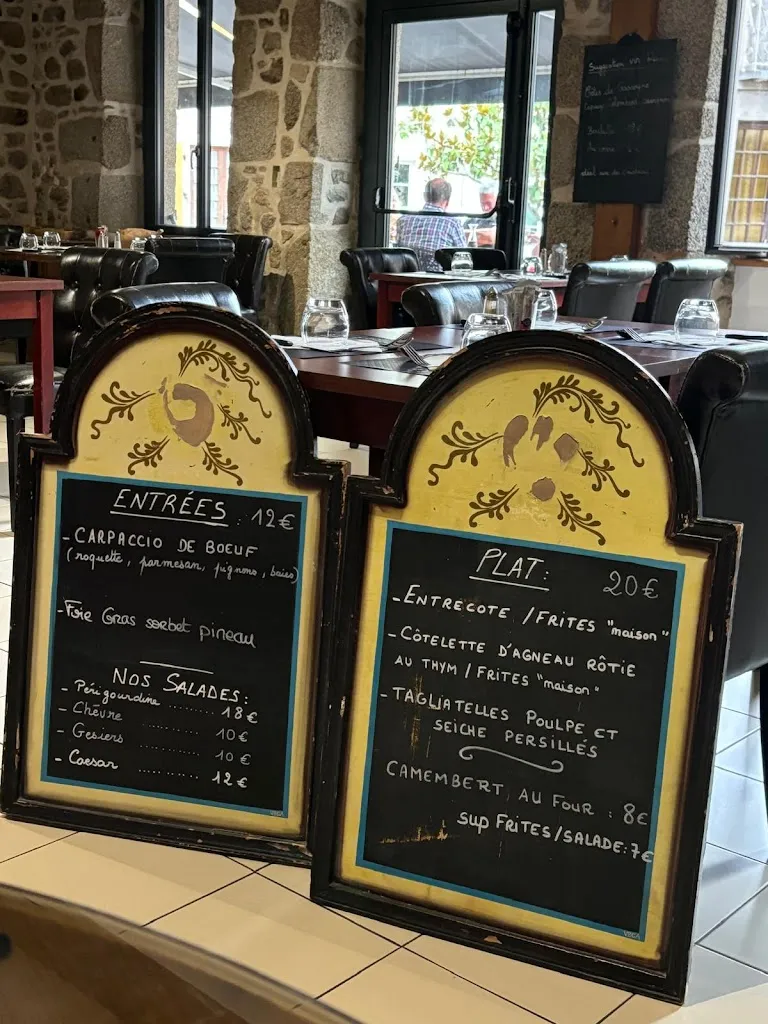 Suggestion vin
ENTRÉES : 12€
- CARPACCIO DE BOEUF
(roquette, parmesan, pignons, baies)
- Foie Gras sorbet pineau
NOS SALADES :
- Périgourdine ........ 18€
- Chèvre ........ 10€
- Gesiers ........ 10€
- Caesar ........ 12€
VEGA
PLAT : 20€
- ENTRECOTE / FRITES "maison"
- CÔTELETTE D'AGNEAU RÔTIE
AU THYM / FRITES "maison"
- TAGLIATELLES POULPE ET
SEICHE PERSILLÉS
CAMEMBERT AU FOUR : 8€
SUP FRITES/SALADE : 7€
VEGA